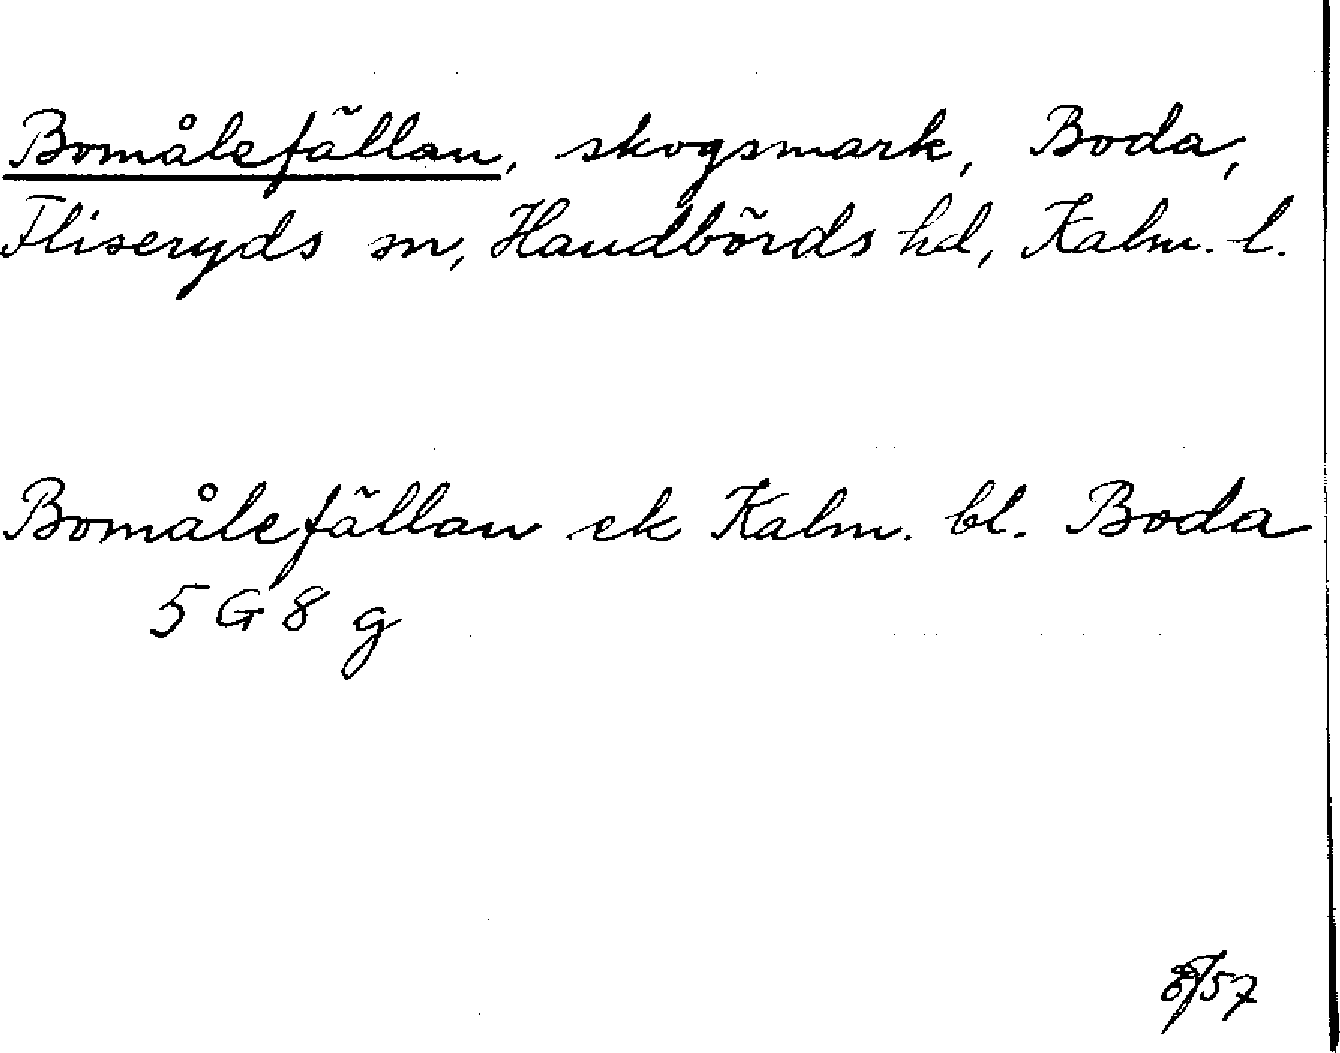 Bomålefällan, skogsmark, Boda,
Fliseryds sn, Handbörds hd, Kalm. l.
Bomålefällan ek Kalm. bl. Boda
5 G 8 g
8/57